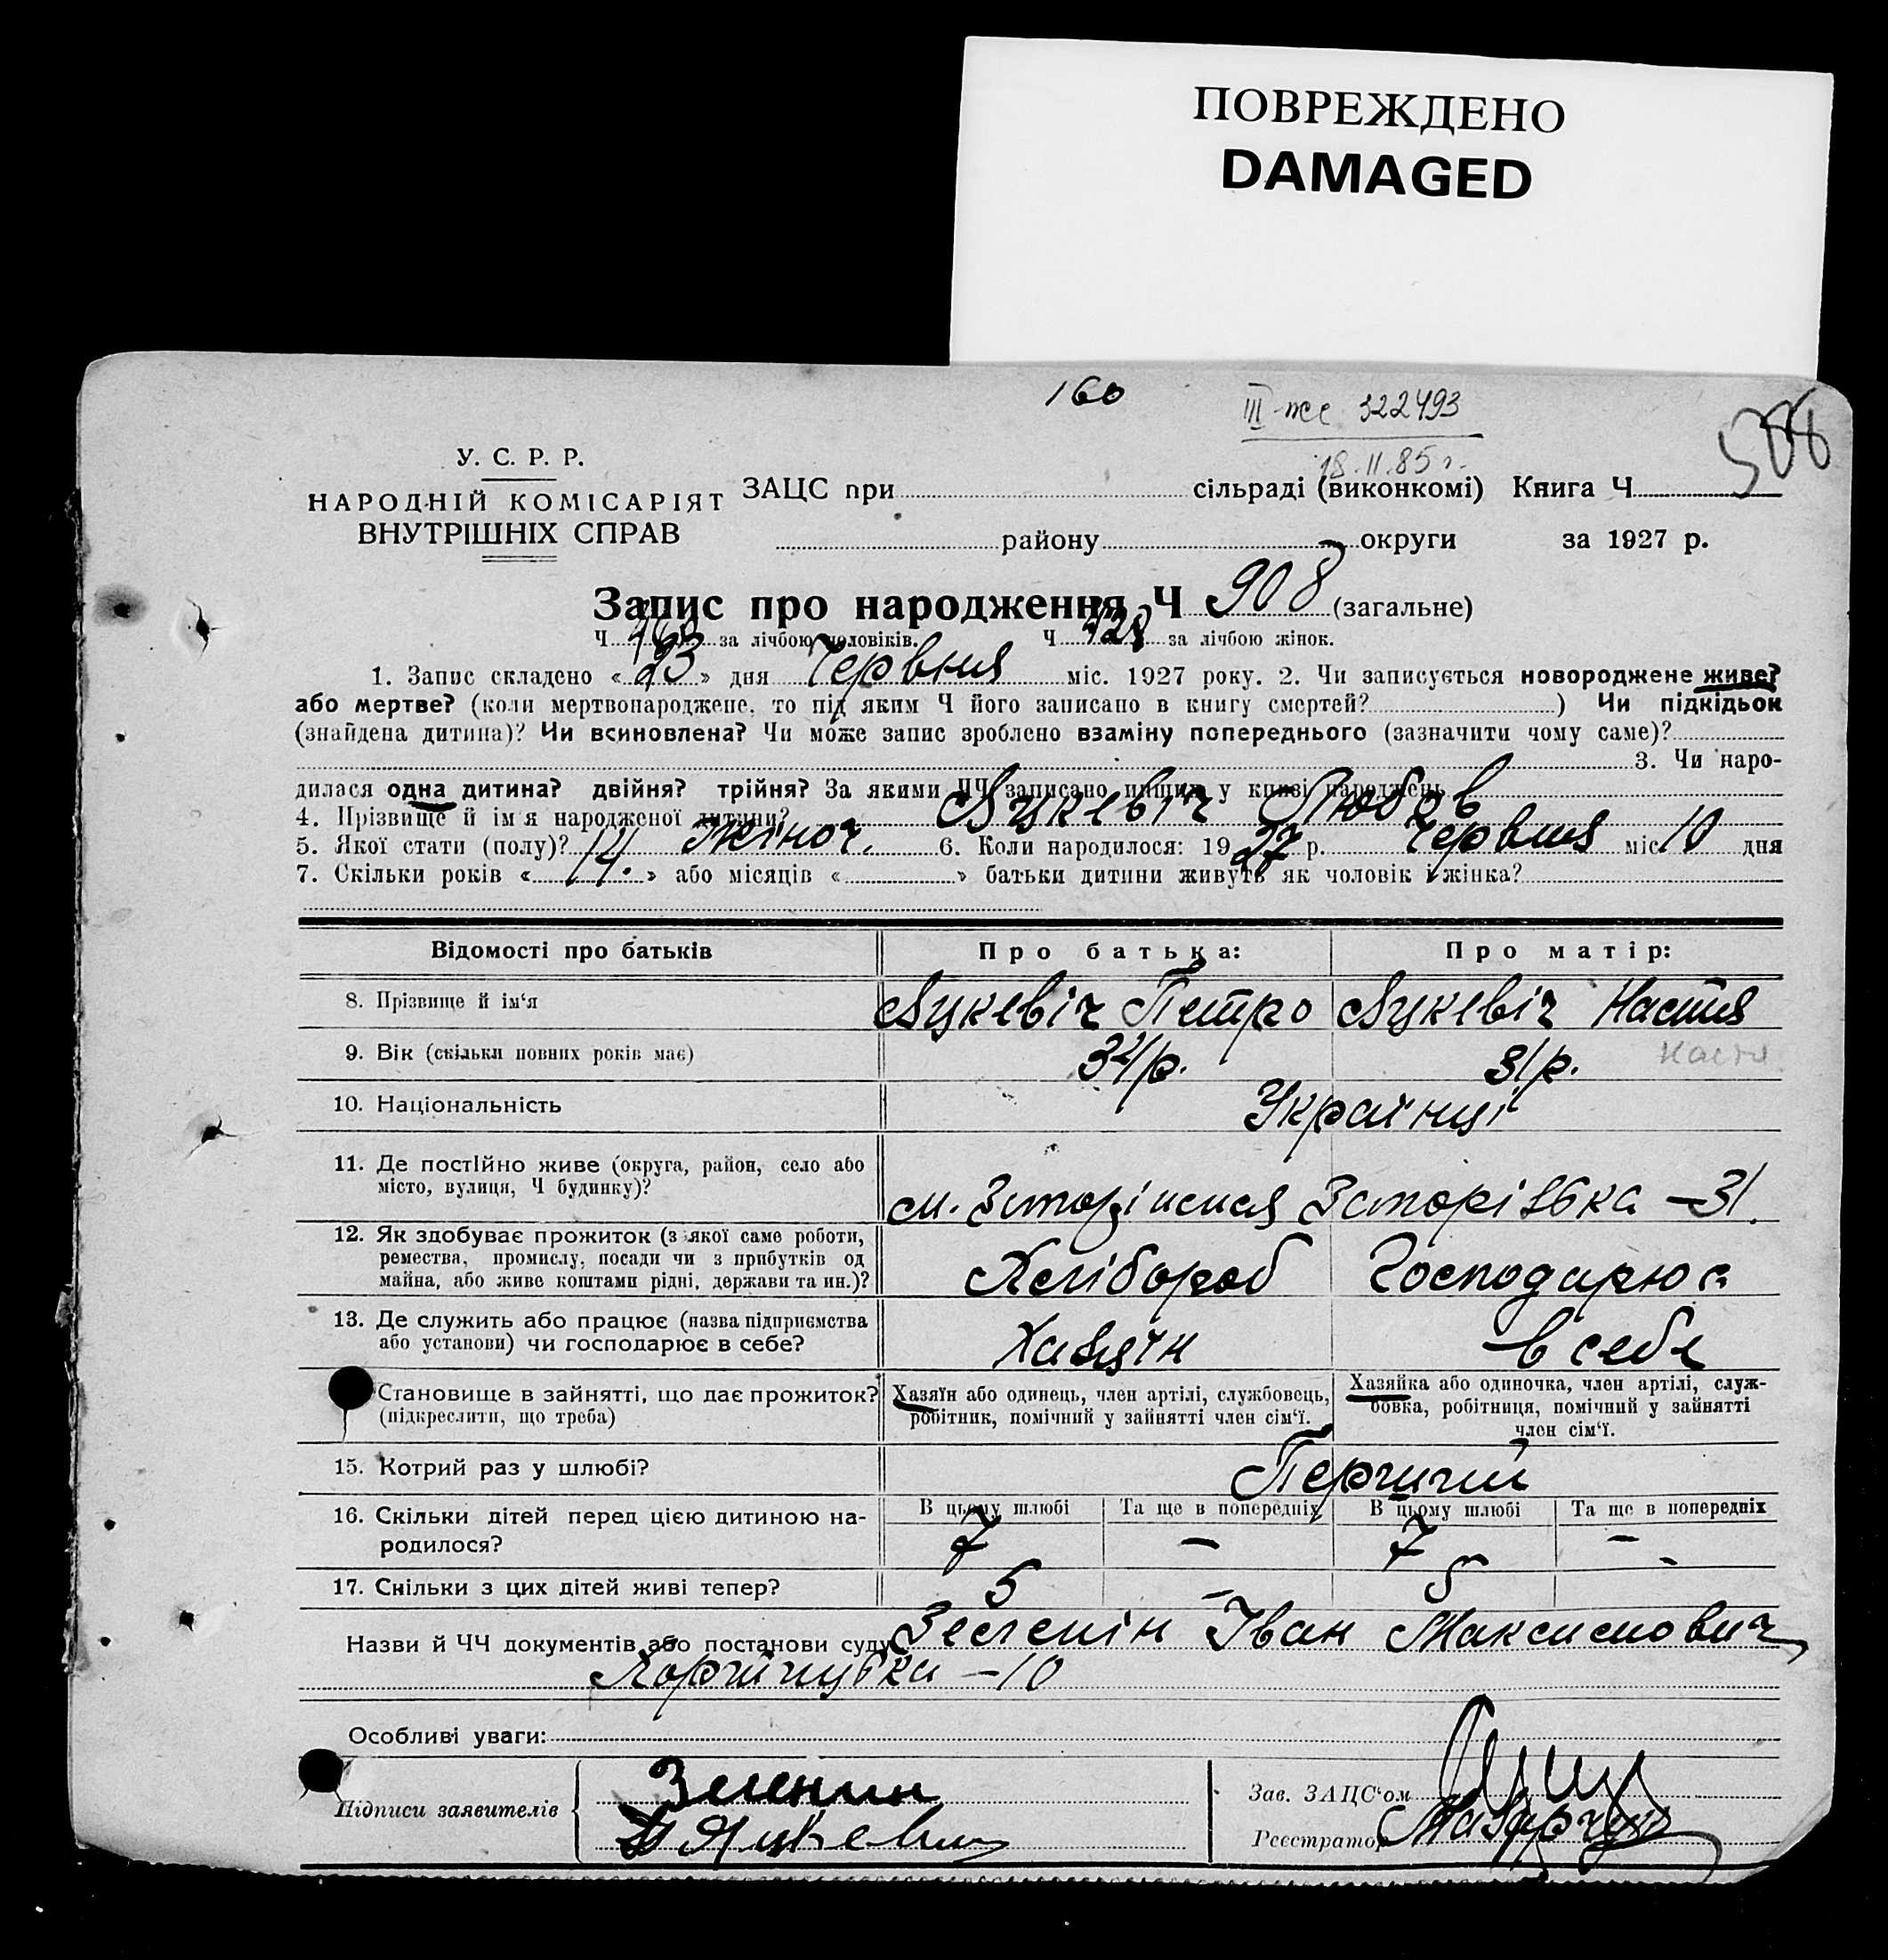 ПОВРЕЖДЕНО
DAMAGED
160
III-же 322493
18.11.85 г.
У. С. Р. Р.
НАРОДНІЙ КОМІСАРІЯТ
ВНУТРІШНІХ СПРАВ
ЗАЦС при сільраді (виконкомі) Книга Ч
району округи за 1927 р.
Запис про народження Ч 908 (загальне)
Ч за лічбою чоловіків. Ч за лічбою жінок.
1. Запис складено « 23 » дня Червня міс. 1927 року. 2. Чи записується новороджене живе?
або мертве? (коли мертвонароджене, то під яким Ч його записано в книгу смертей? ) Чи підкідьок
(знайдена дитина)? Чи всиновлена? Чи може запис зроблено взаміну попереднього (зазначити чому саме)?
3. Чи наро-
дилася одна дитина? двійня? трійня? За якими ЧЧ записано инших у книзі народжень
4. Прізвище й ім'я народженої дитини? Яцкевіч Любов
5. Якої стати (полу)? Жіноч. 6. Коли народилося: 19 27 р. Червня міс. 10 дня
7. Скільки років « 14. » або місяців « » батьки дитини живуть як чоловік і жінка?
Відомості про батьків Про батька: Про матір:
8. Прізвище й ім'я Яцкевіч Петро Яцкевіч Настя
9. Вік (скільки повних років має) 34 р. 31 р. Настя
10. Національність Українці
11. Де постійно живе (округа, район, село або
місто, вулиця, Ч будинку)? –31.
12. Як здобуває прожиток (з якої саме роботи,
ремества, промислу, посади чи з прибутків од
майна, або живе коштами рідні, держави та ин.)? Хлібороб Господарює
13. Де служить або працює (назва підприємства
або установи) чи господарює в себе? Хазяїн в себе
Становище в зайнятті, що дає прожиток?
(підкреслити, що треба)
Хазяїн або одинець, член артілі, службовець,
робітник, помічний у зайнятті член сім'ї.
Хазяйка або одиночка, член артілі, служ-
бовка, робітниця, помічний у зайнятті
член сім'ї.
15. Котрий раз у шлюбі? Перший
16. Скільки дітей перед цією дитиною на-
родилося?
В цьому шлюбі Та ще в попередніх В цьому шлюбі Та ще в попередніх
7 – 7 –
17. Скільки з цих дітей живі тепер? 5 – 5 –
Назви й ЧЧ документів або постанови суду Зеленін Іван Максимович
–10
Особливі уваги:
Підписи заявителів Зеленин
Яцкевич
Зав. ЗАЦС'ом
Реєстратор